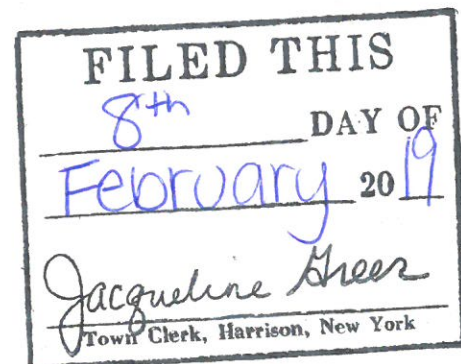 FILED THIS
8th DAY OF
February 2019
Jacqueline Greer
Town Clerk, Harrison, New York